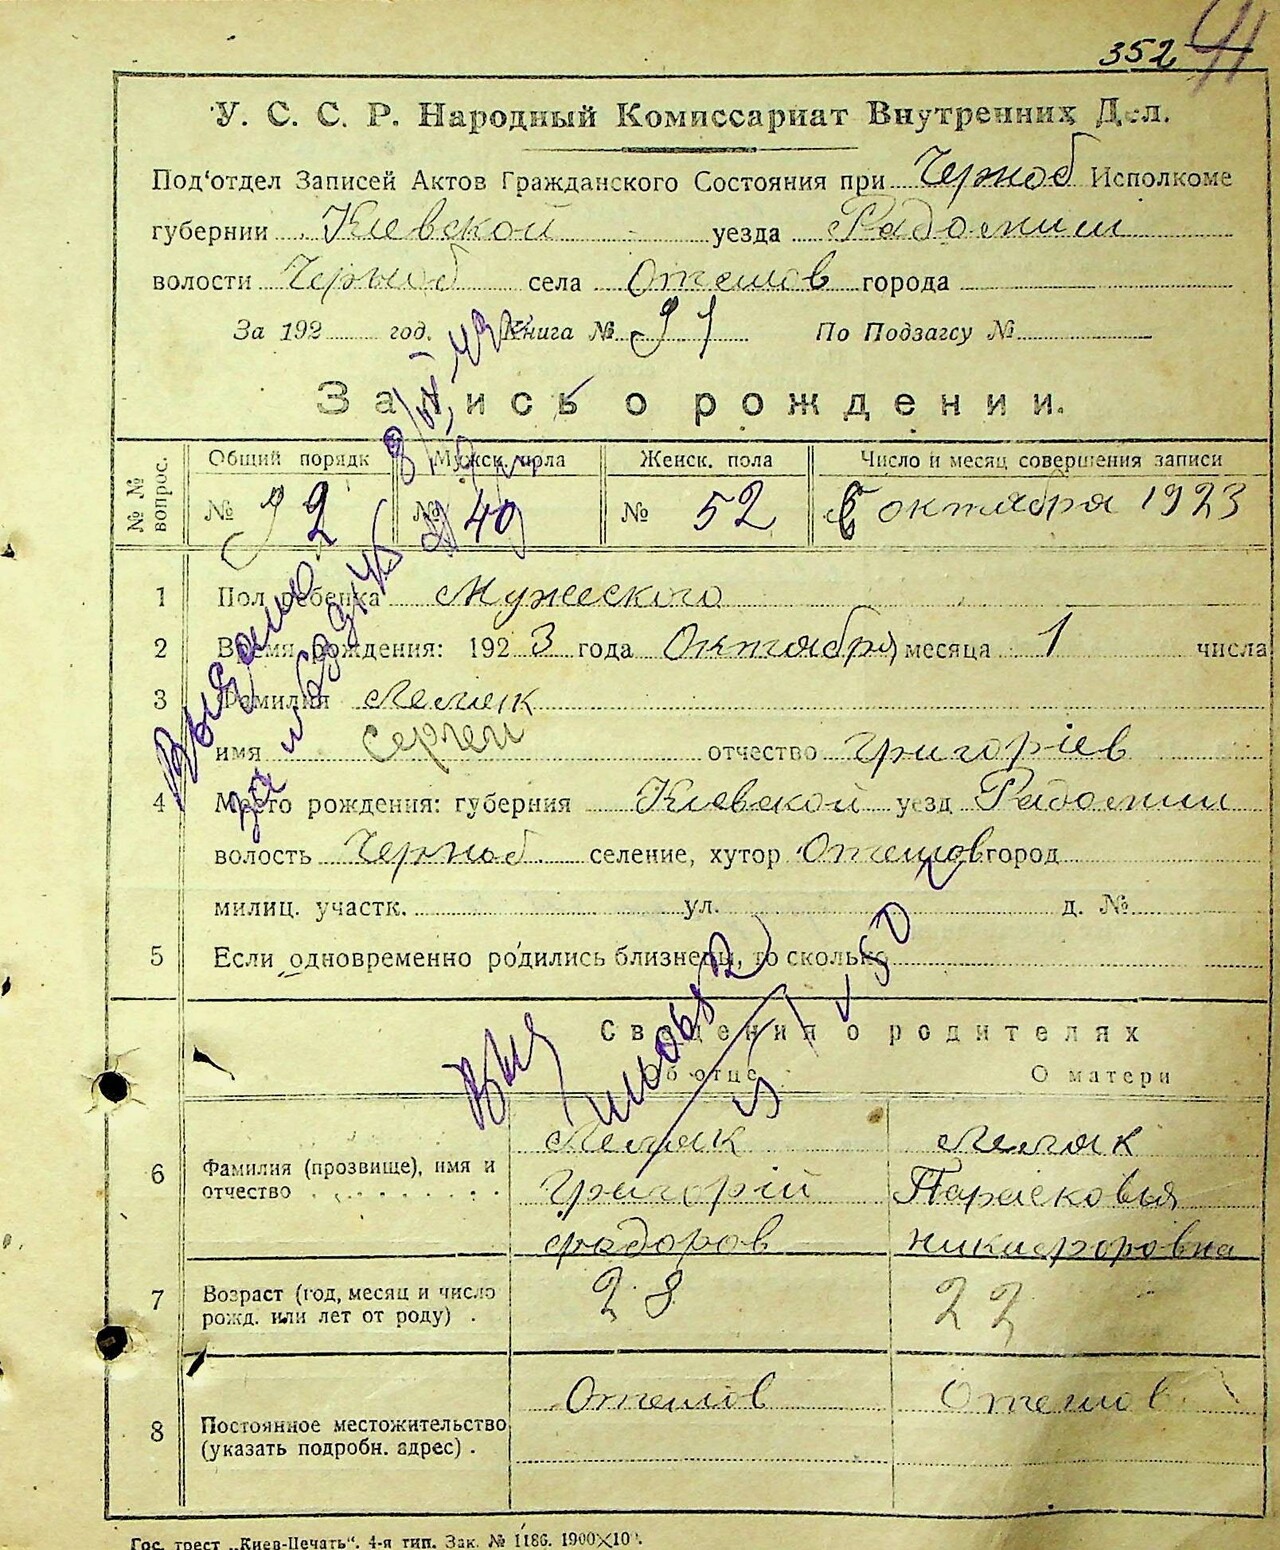 352 91
У. С. С. Р. Народный Комиссариат Внутренних Дел.
Под'отдел Записей Актов Гражданского Состояния при Черноб Исполкоме
губернии Киевской уезда Радомиш
волости Черноб села Оташов города
За 192 год. Книга № 91 По Подзагсу №
Запись о рождении.
№№ вопрос. Общий порядк Мужск. пола Женск. пола Число и месяц совершения записи
№ 92 № 40 № 52 6 октября 1923
1 Пол ребенка Мужеского
2 Время рождения: 1923 года Октября месяца 1 числа
3 Фамилия Лемяк
имя Сергей отчество Григоріев
4 Место рождения: губерния Киевской уезд Радомиш
волость Черноб селение, хутор Оташов город
милиц. участк. ул. д. №
5 Если одновременно родились близнецы, то сколько
Сведения о родителях
Об отце О матери
6 Фамилия (прозвище), имя и отчество
Лемяк Лемяк
Григорій Парасковья
Фадоров Никифоровна
7 Возраст (год, месяц и число рожд. или лет от роду). 28 22
8 Постоянное местожительство (указать подробн. адрес). Оташов Оташов
Выдано
Гос. трест „Киев-Печать“. 4-я тип. Зак. № 1186. 1900×10